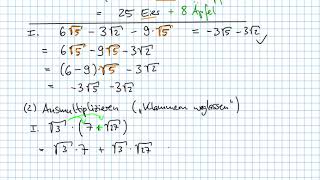 = 25 Eier + 8 Äpfel
I. 6√5 - 3√2 - 9·√5 = -3√5 - 3√2 ✓
= 6√5 - 9√5 - 3√2
= (6-9)·√5 - 3√2
= -3√5 - 3√2
(2) Ausmultiplizieren („Klammern weglassen“)
I. √3 · (7 + √27)
= √3 · 7 + √3 · √27